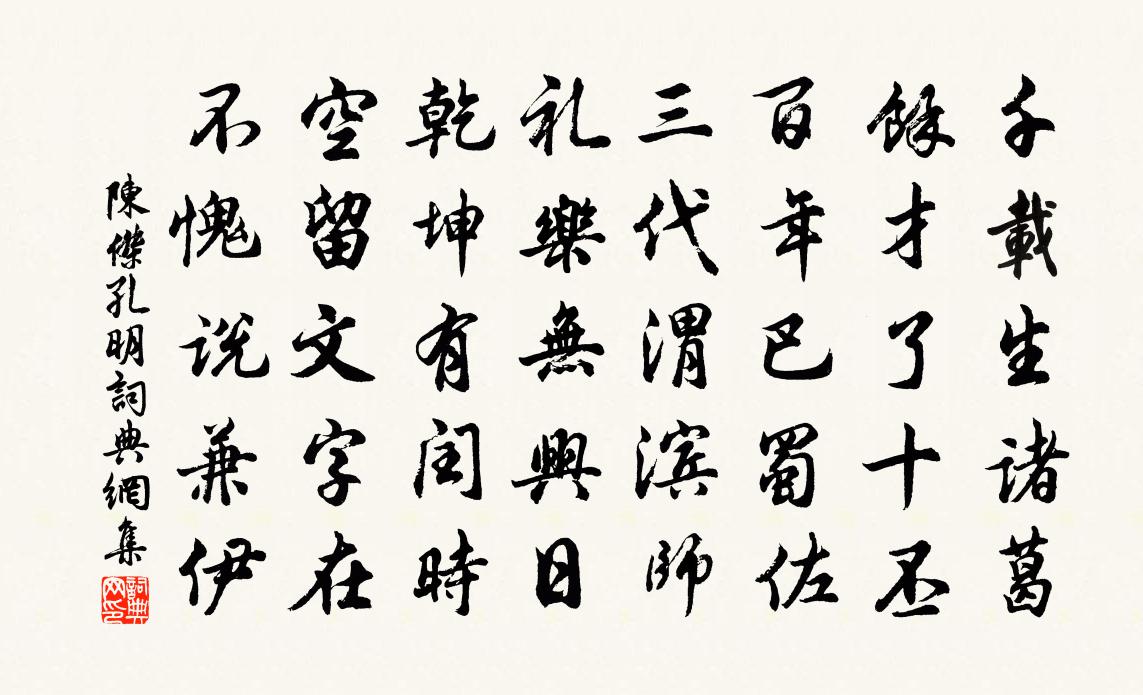 千載生諸葛
餘才了十丕
百年巴蜀佐
三代渭滨師
礼樂無興日
乾坤有闰時
空留文字在
不愧说兼伊
陳傑孔明詞典網集
詞典网印